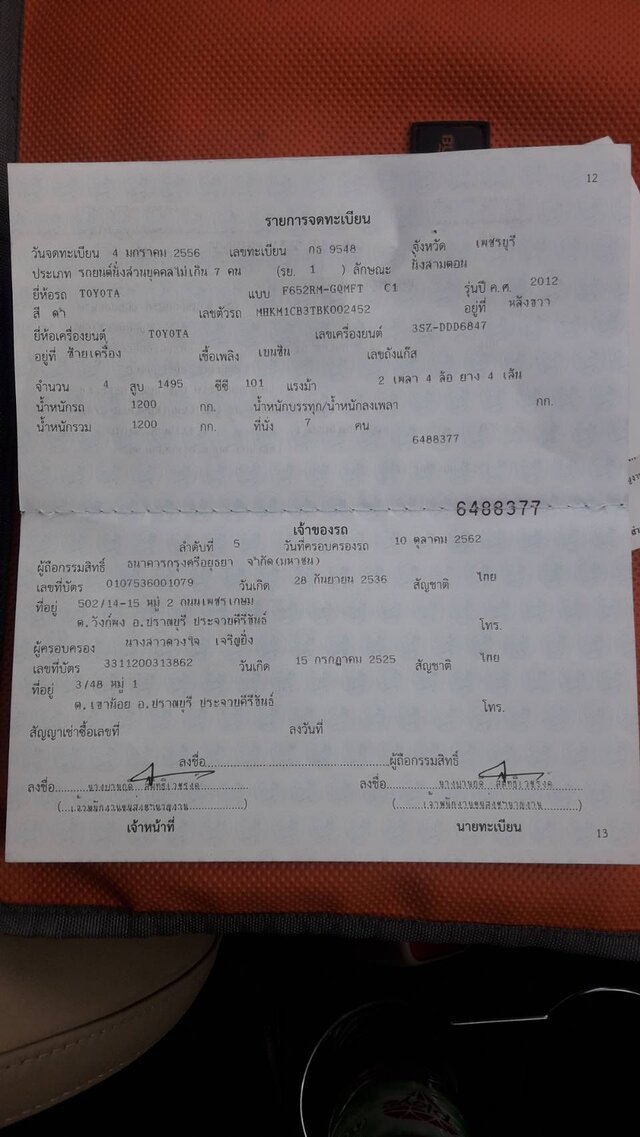 12
รายการจดทะเบียน
วันจดทะเบียน 4 มกราคม 2556 เลขทะเบียน กธ 9548 จังหวัด เพชรบุรี
ประเภท รถยนต์นั่งส่วนบุคคลไม่เกิน 7 คน (รย. 1 ) ลักษณะ นั่งสามตอน
ยี่ห้อรถ TOYOTA แบบ F652RM-GQMFT C1 รุ่นปี ค.ศ. 2012
สี ดำ เลขตัวรถ MHKM1CB3TBK002452 อยู่ที่ หลังขวา
ยี่ห้อเครื่องยนต์ TOYOTA เลขเครื่องยนต์ 3SZ-DDD6847
อยู่ที่ ซ้ายเครื่อง เชื้อเพลิง เบนซิน เลขถังแก๊ส
จำนวน 4 สูบ 1495 ซีซี 101 แรงม้า 2 เพลา 4 ล้อ ยาง 4 เส้น
น้ำหนักรถ 1200 กก. น้ำหนักบรรทุก/น้ำหนักลงเพลา กก.
น้ำหนักรวม 1200 กก. ที่นั่ง 7 คน
6488377
6488377
เจ้าของรถ
ลำดับที่ 5 วันที่ครอบครองรถ 10 ตุลาคม 2562
ผู้ถือกรรมสิทธิ์ ธนาคารกรุงศรีอยุธยา จำกัด(มหาชน)
เลขที่บัตร 0107536001079 วันเกิด 28 กันยายน 2536 สัญชาติ ไทย
ที่อยู่ 502/14-15 หมู่ 2 ถนนเพชรเกษม
ต.วังก์พง อ.ปราณบุรี ประจวบคีรีขันธ์ โทร.
ผู้ครอบครอง นางสาวดวงใจ เจริญยิ่ง
เลขที่บัตร 3311200313862 วันเกิด 15 กรกฎาคม 2525 สัญชาติ ไทย
ที่อยู่ 3/48 หมู่ 1
ต.เขาน้อย อ.ปราณบุรี ประจวบคีรีขันธ์ โทร.
สัญญาเช่าซื้อเลขที่ ลงวันที่
ลงชื่อ ผู้ถือกรรมสิทธิ์
ลงชื่อ ลงชื่อ
(เจ้าพนักงานขนส่งชำนาญงาน) (เจ้าพนักงานขนส่งชำนาญงาน)
เจ้าหน้าที่ นายทะเบียน
13